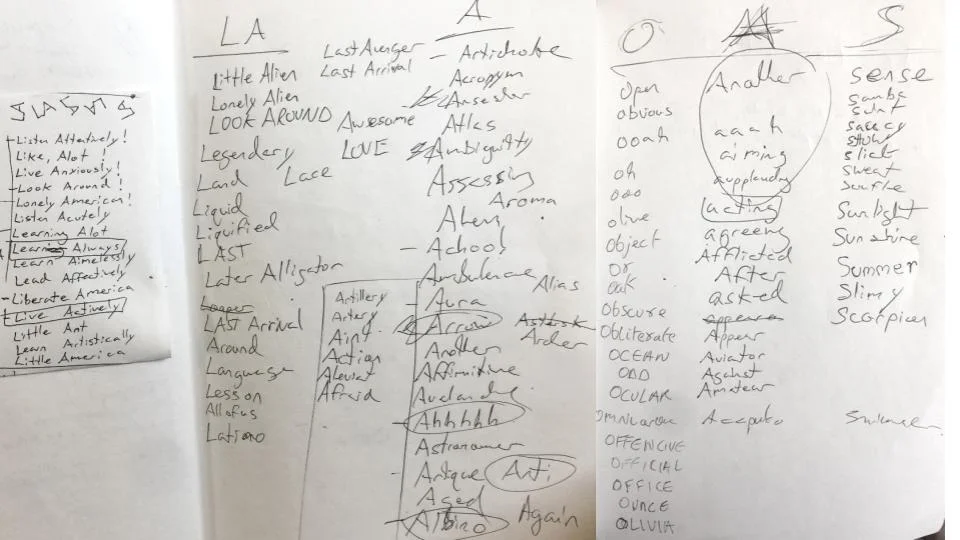 Listen Attentively!
Like, Alot!
Live Anxiously!
Look Around!
Lonely American!
Listen Acutely
Learning Alot
Learning Always
Learn Aimelessly
Lead Affectively
Liberate America
Live Actively
Little Ant
Learn Artistically
Little America
LA
Little Alien
Lonely Alien
LOOK AROUND
Legendary
Land
Liquid
Liquified
LAST
Later Alligator
LAST Arrival
Around
Language
Lesson
Allofus
Latino
Last Avenger
Last Arrival
Awesome
LOVE
Lace
Artillery
Artery
Aint
Action
Afraid
A
Artichoke
Acronym
Ansestor
Atlas
Ambiguitty
Assessing
Aroma
Alien
Achool
Ambulence
Alias
Aura
Arrow
Asterisk
Archer
Another
Affimitive
Avalanche
Ahhhhh
Astronomer
Antique
Anti
Aged
Albino
Again
O
Open
obvious
oooh
oh
ooo
olive
Object
Or
oak
Obscure
Obliterate
OCEAN
ODD
OCULAR
OFFENCIVE
OFFICIAL
OFFICE
OUNCE
OLIVIA
A
Another
aaah
aiming
applauding
acting
agreeing
Afflicted
After
asked
appear
Appear
Aviator
Against
Amateur
S
sense
samba
saucy
slick
sweat
Sunlight
Sunshine
Summer
Slimy
Scorpion